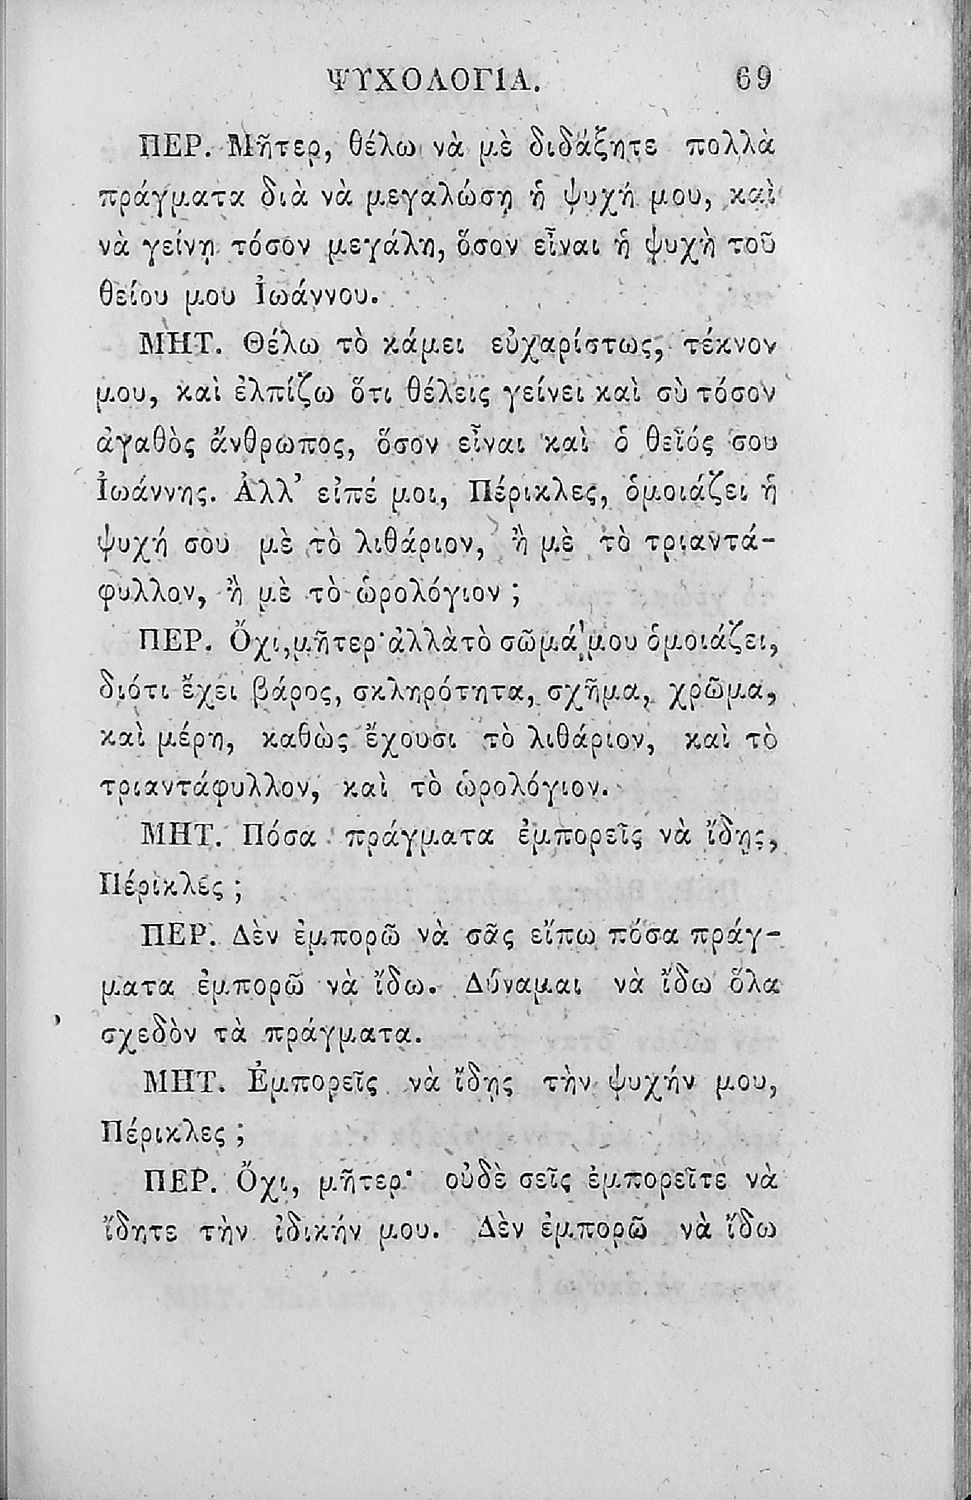 ΨΥΧΟΛΟΓΙΑ. 69
ΠΕΡ. Μῆτερ, θέλω νὰ μὲ διδάξητε πολλὰ
πράγματα διὰ νὰ μεγαλώσῃ ἡ ψυχή μου, καὶ
νὰ γείνῃ τόσον μεγάλη, ὅσον εἶναι ἡ ψυχὴ τοῦ
θείου μου Ἰωάννου.
ΜΗΤ. Θέλω τὸ κάμει εὐχαρίστως, τέκνον
μου, καὶ ἐλπίζω ὅτι θέλεις γείνει καὶ σὺ τόσον
ἀγαθὸς ἄνθρωπος, ὅσον εἶναι καὶ ὁ θεῖός σου
Ἰωάννης. Ἀλλ’ εἰπέ μοι, Πέρικλες, ὁμοιάζει ἡ
ψυχή σου μὲ τὸ λιθάριον, ἢ μὲ τὸ τριαντά-
φυλλον, ἢ μὲ τὸ ὡρολόγιον ;
ΠΕΡ. Ὄχι, μῆτερ· ἀλλὰ τὸ σῶμά μου ὁμοιάζει,
διότι ἔχει βάρος, σκληρότητα, σχῆμα, χρῶμα,
καὶ μέρη, καθὼς ἔχουσι τὸ λιθάριον, καὶ τὸ
τριαντάφυλλον, καὶ τὸ ὡρολόγιον.
ΜΗΤ. Πόσα πράγματα ἐμπορεῖς νὰ ἴδῃς,
Πέρικλες ;
ΠΕΡ. Δὲν ἐμπορῶ νὰ σᾶς εἴπω πόσα πράγ-
ματα ἐμπορῶ νὰ ἴδω. Δύναμαι νὰ ἴδω ὅλα
σχεδὸν τὰ πράγματα.
ΜΗΤ. Ἐμπορεῖς νὰ ἴδῃς τὴν ψυχήν μου,
Πέρικλες ;
ΠΕΡ. Ὄχι, μῆτερ· οὐδὲ σεῖς ἐμπορεῖτε νὰ
ἴδητε τὴν ἰδικήν μου. Δὲν ἐμπορῶ νὰ ἴδω